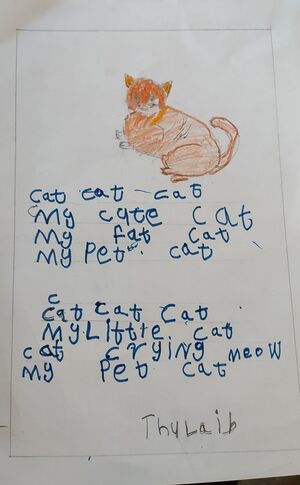 cat cat cat
My cute cat
My fat cat
My Pet cat
c
cat cat cat
My Little cat
cat crying meow
My Pet cat
Thulaib